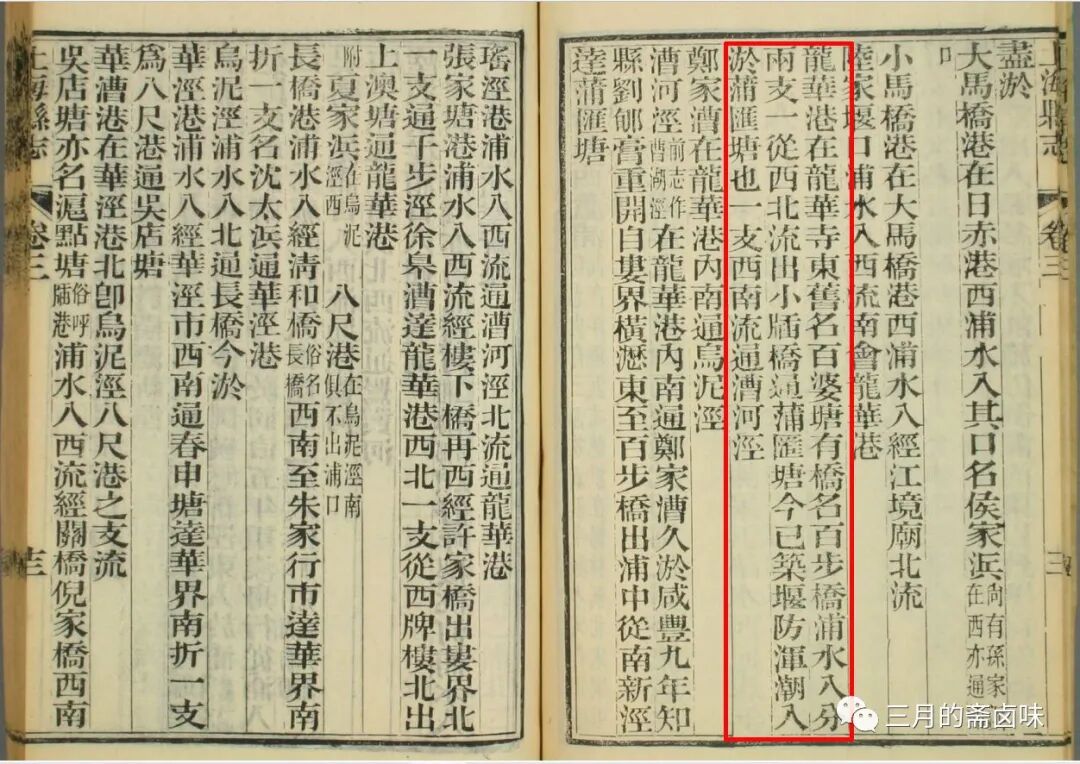 上海縣志 卷三
盡淤
大馬橋港在日赤港西浦水入其口名侯家浜尚有孫家在西亦通
口
小馬橋港在大馬橋港西浦水入經江境廟北流
陸家堰口浦水入西流南會龍華港
龍華港在龍華寺東舊名百婆塘有橋名百步橋浦水入分
兩支一從西北流出小牐橋通蒲匯塘今已築堰防渾潮入
淤蒲匯塘也一支西南流通漕河涇
鄭家漕在龍華港內南通烏泥涇
漕河涇前志作漕湖涇在龍華港內南通鄭家漕久淤咸豐九年知
縣劉郇膏重開自婁界橫瀝東至百步橋出浦中從南新涇
達蒲匯塘
瑤涇港浦水入西流通漕河涇北流通龍華港
張家塘港浦水入西流經樓下橋再西經許家橋出婁界北
一支通千步涇徐臯漕達龍華港西北一支從西牌樓北出
上澳塘通龍華港
附夏家浜在烏泥涇西 八尺港在烏泥涇南俱不出浦口
長橋港浦水入經淸和橋俗名長橋西南至朱家行市達華界南
折一支名沈太浜通華涇港
烏泥涇浦水入北通長橋今淤
華涇港浦水入經華涇市西南通春申塘達華界南折一支
爲八尺港通吳店塘
華漕港在華涇港北卽烏泥涇八尺港之支流
吳店塘亦名滬點塘俗呼廟港浦水入西流經關橋倪家橋西南
上海縣志 卷三
三月的斋卤味